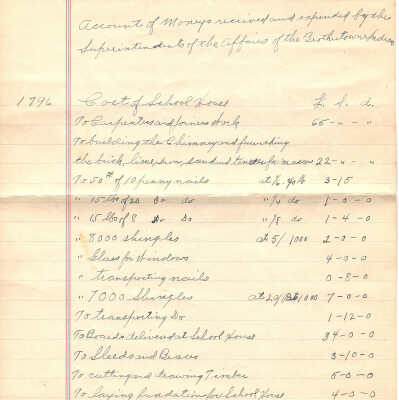 Account of Moneys received and expended by the
Superintendents of the Affairs of the Brothertown Indians
1796 Cost of School House £. s. d.
To Carpenters and joiners work 65 - " - "
To building the Chimney and furnishing
the brick, lime, sand and mason 22 - " - "
To 50 lb of 10 penny nails at 3-15
" 15 lbs of 20 Do do "/4 do 1-0-0
" 15 lbs of 8 Do do "/8 do 1-4-0
" 8000 shingles at 5/ 1000 2-0-0
" Glass for Windows 4-0-0
" transporting nails 0-8-0
" 7000 Shingles at 20/ 1000 7-0-0
To transporting Do 1-12-0
To Boards delivered at School House 34-0-0
To Sleeds and 3-10-0
To cutting and drawing Timber 5-0-0
To laying foundation for School House 4-0-0